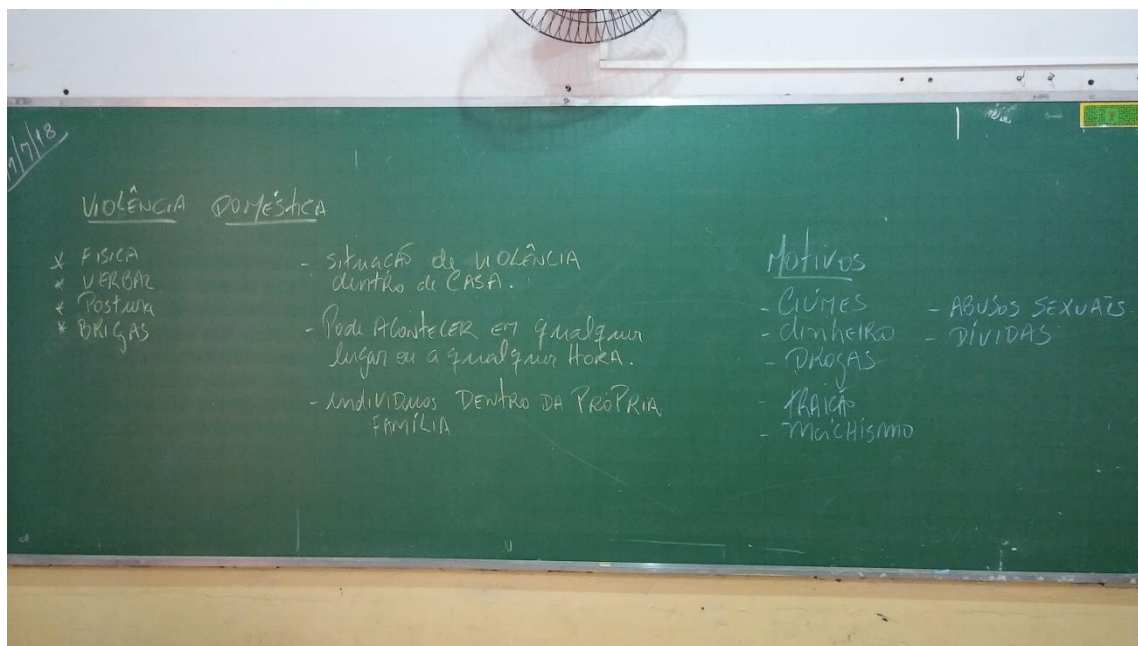 /7/18
VIOLÊNCIA DOMÉSTICA
* FISICA
* VERBAL
* Postura
* BRIGAS
- Situação de VIOLÊNCIA
dentro de CASA.
- Pode Acontecer em qualquer
lugar ou a qualquer HORA.
- indivíduos DENTRO DA PRÓPRIA
FAMÍLIA
Motivos
- CIÚMES
- dinheiro
- DROGAS
- TRAIÇÃO
- MACHISMO
- ABUSOS SEXUAIS
- DÍVIDAS